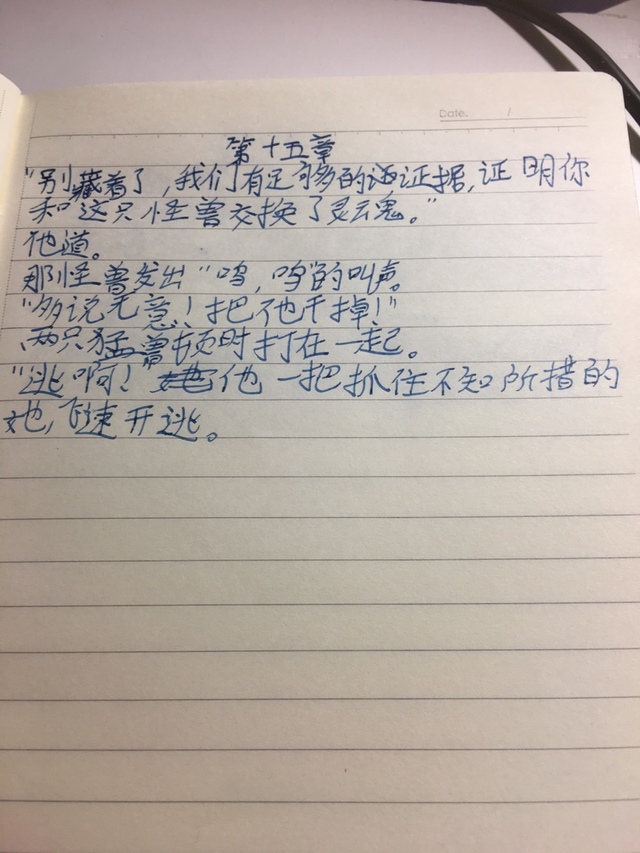 Date. /
第十五章
"别藏着了，我们有足够多的证据，证明你
和这只怪兽交换了灵魂。"
他道。
那怪兽发出"呜，呜"的叫声。
"多说无意！把他干掉！"
两只猛兽顿时打在一起。
"逃啊！他一把抓住不知所措的
她，飞速开逃。